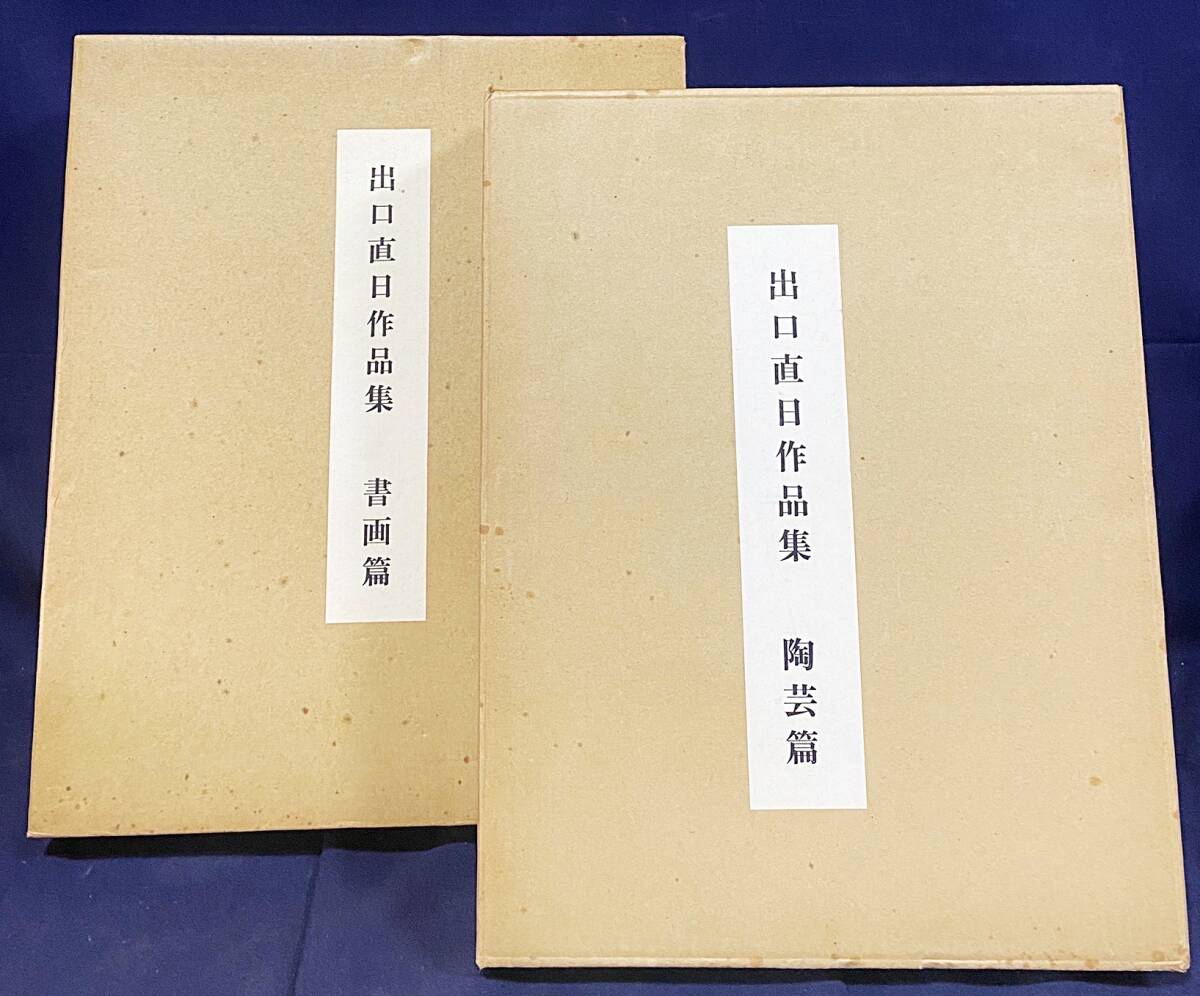 出口直日作品集 書画篇
出口直日作品集 陶芸篇